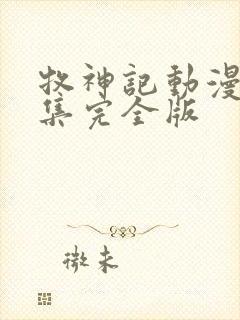 牧神記動漫
集完全版
微末